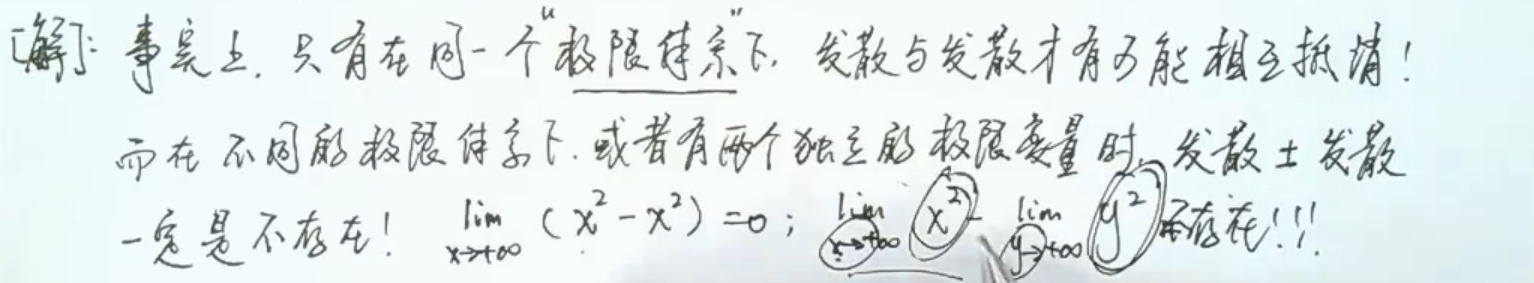 [解]: 事实上, 只有在同一个“极限体系”下, 发散与发散才有可能相互抵消!
而在不同的极限体系下, 或者有两个独立的极限变量时, 发散±发散
一定是不存在! lim x→+∞ (x²-x²)=0; lim x→+∞ x² - lim y→+∞ y² 不存在!!!